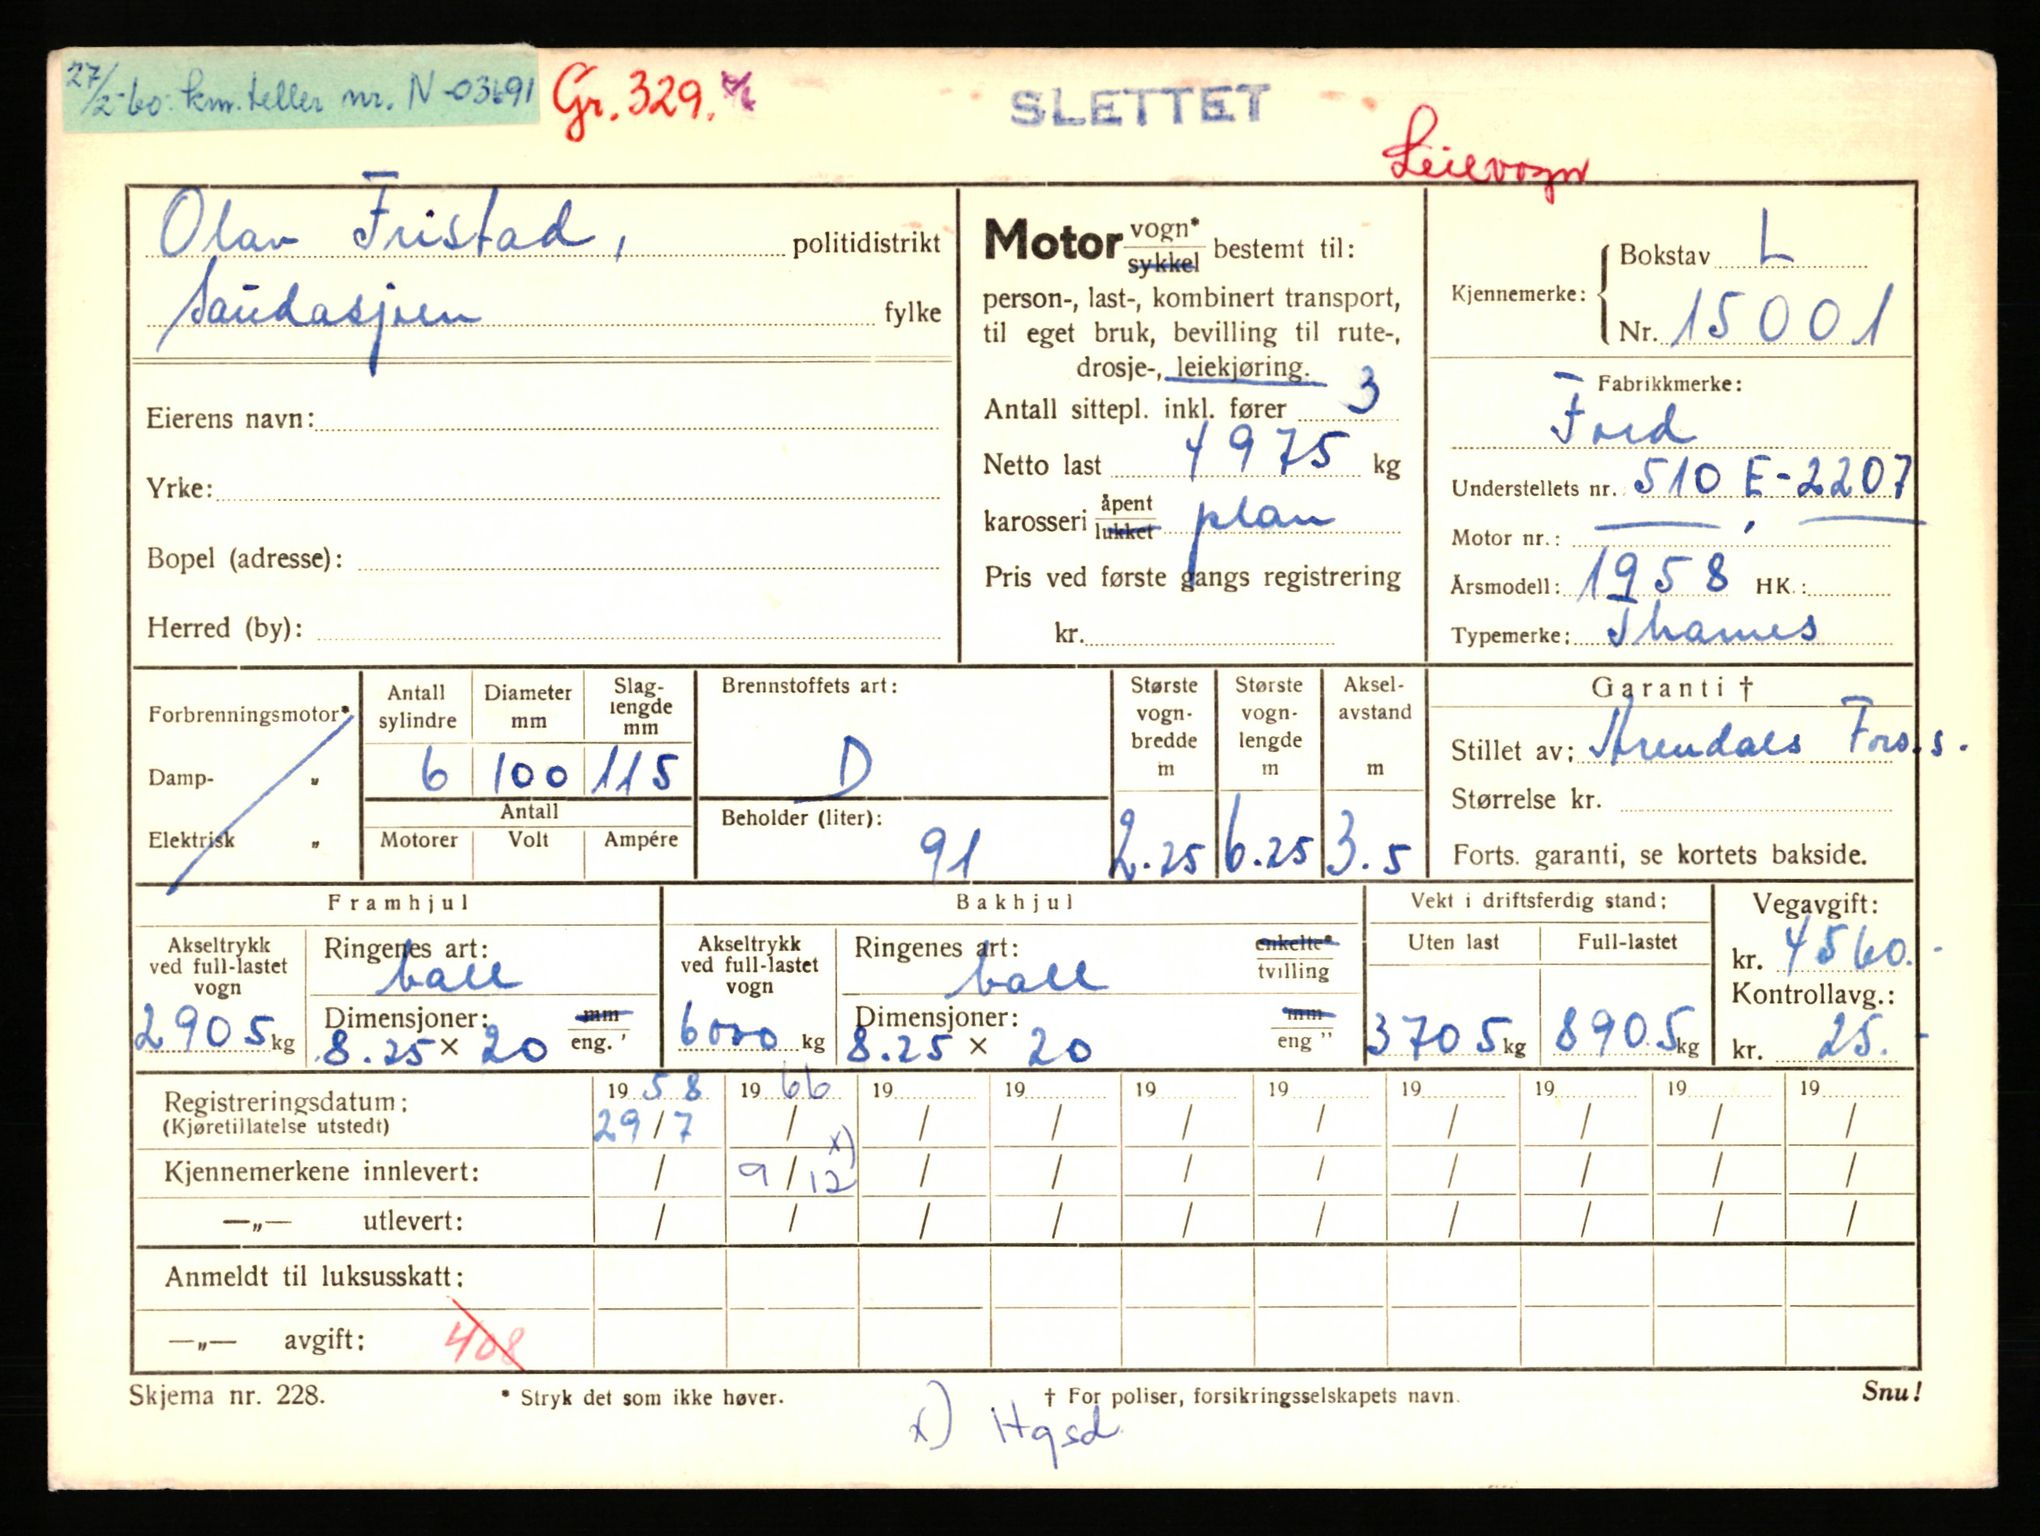 27/2-60. km. teller nr. N-03691 Gr. 329. SLETTET
Leievogn
Olav Fristad, politidistrikt
Saudasjøen fylke
Eierens navn:
Yrke:
Bopel (adresse):
Herred (by):
Motor vogn* sykkel bestemt til:
person-, last-, kombinert transport,
til eget bruk, bevilling til rute-,
drosje-, leiekjøring.
Antall sittepl. inkl. fører 3
Netto last 4975 kg
karosseri åpent lukket plan
Pris ved første gangs registrering
kr.
Kjennemerke: Bokstav L
Nr. 15001
Fabrikkmerke:
Ford
Understellets nr. 510 E-2207
Motor nr.:
Årsmodell: 1958 HK.:
Typemerke: Thames
Forbrenningsmotor*
Damp- "
Elektrisk "
Antall sylindre 6
Diameter mm 100
Slag-lengde mm 115
Antall
Motorer Volt Ampére
Brennstoffets art:
D
Beholder (liter):
91
Største vogn-bredde m 2.25
Største vogn-lengde m 6.25
Aksel-avstand m 3.5
Garanti †
Stillet av: Arendals Fors.s.
Størrelse kr.
Forts. garanti, se kortets bakside.
Framhjul
Akseltrykk ved full-lastet vogn
2905 kg
Ringenes art:
ball
Dimensjoner: mm
8.25 × 20 eng. '
Bakhjul
Akseltrykk ved full-lastet vogn
6000 kg
Ringenes art: enkelte*
ball tvilling
Dimensjoner: mm
8.25 × 20 eng "
Vekt i driftsferdig stand:
Uten last Full-lastet
3705 kg 8905 kg
Vegavgift:
kr. 4560.-
Kontrollavg.:
kr. 25.-
Registreringsdatum: 1958 1966 19 19 19 19 19 19 19 19
(Kjøretillatelse utstedt) 29/7 / / / / / / / / /
Kjennemerkene innlevert: / 9/12 x) / / / / / / / /
—„— utlevert: / / / / / / / / / /
Anmeldt til luksusskatt:
—„— avgift: 408
Skjema nr. 228. * Stryk det som ikke høver. † For poliser, forsikringsselskapets navn. Snu!
x) Hgsd